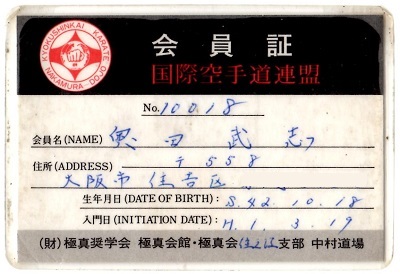 KYOKUSHINKAI KARATE
NAKAMURA DOJO
会員証
国際空手道連盟
No. 10018
会員名(NAME) 奥田 武志
住所(ADDRESS) 〒558
大阪市 住吉区
生年月日(DATE OF BIRTH): S.42.10.18
入門日(INITIATION DATE): H.1.3.19
(財)極真奨学会 極真会館・極真会 支部 中村道場